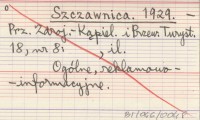 Szczawnica. 1929. —
Prz. Zdroj.-Kąpiel. i Przew. Turyst.
18, nr 8: , il.
Ogólne, reklamowo-
-informacyjne.